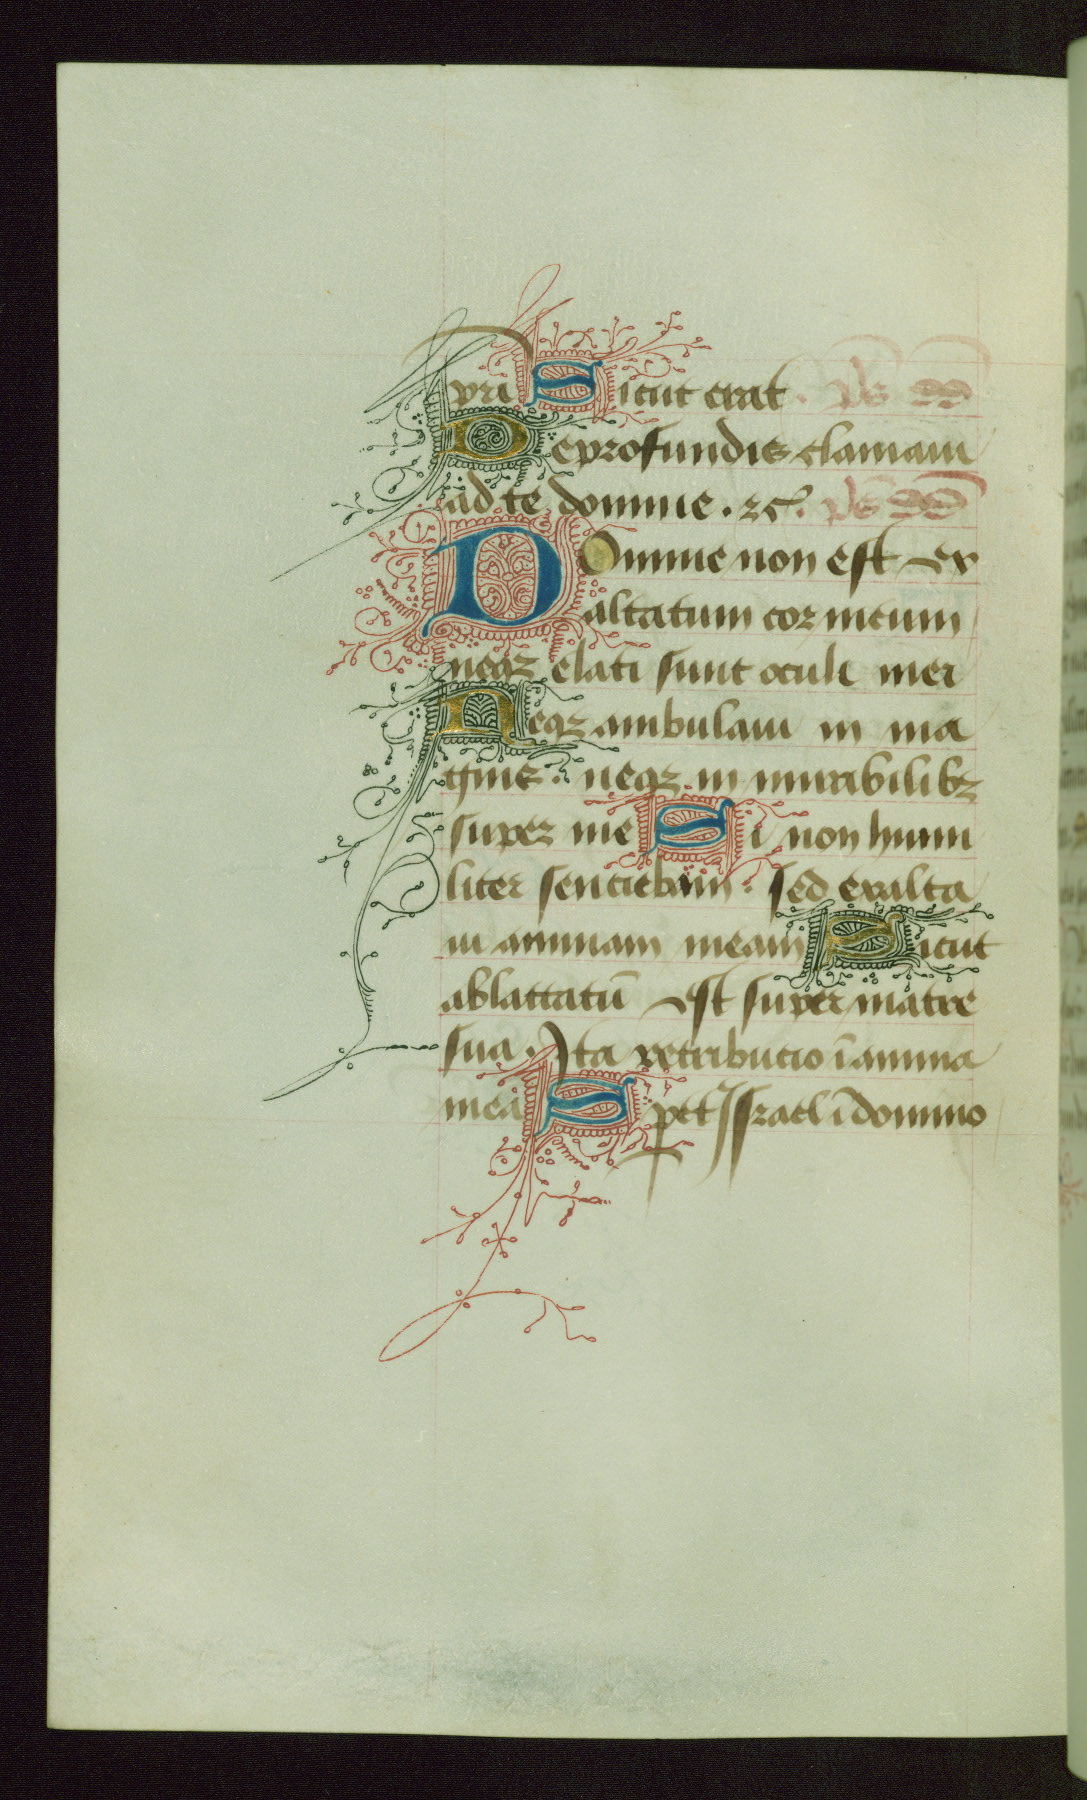 pri Sicut erat. ps
De profundis clamaui
ad te domine. ⁊c̃. ps
Domine non est ex
altatum cor meum
neqꝫ elati sunt oculi mei
Neqꝫ ambulaui in ma
gnis: neqꝫ in mirabilibꝫ
super me Si non humi
liter sentiebam: sed exalta
ui animam meam Sicut
ablactatū est super matre
sua. Ita retributio ī anima
mea Spet Israel ī domino